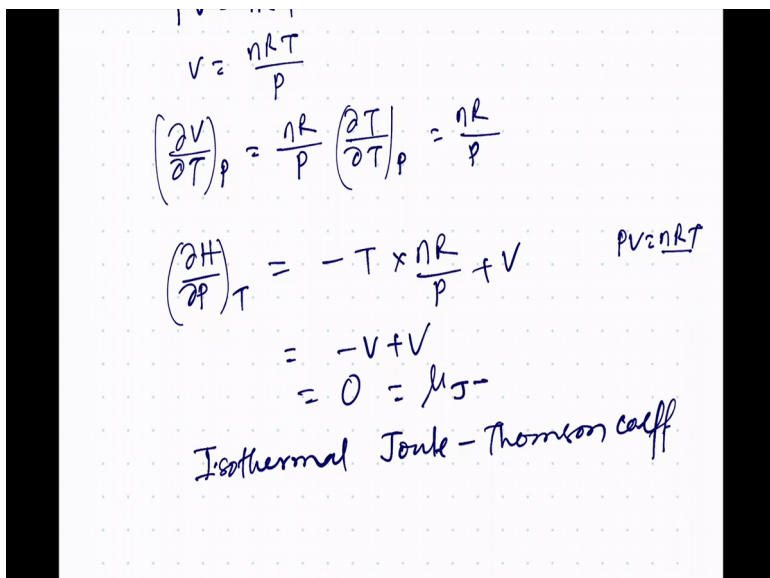 V = nRT/P
(∂V/∂T)_P = nR/P (∂T/∂T)_P = nR/P
(∂H/∂P)_T = - T × nR/P + V
PV = nRT
= -V + V
= 0 = μ_J-
Isothermal Joule - Thomson coeff